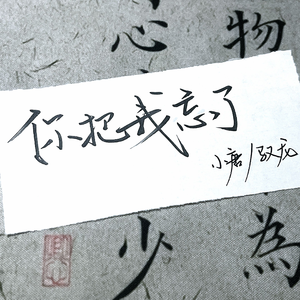 你把我忘了
小唐/驭龙
心
物
少
為